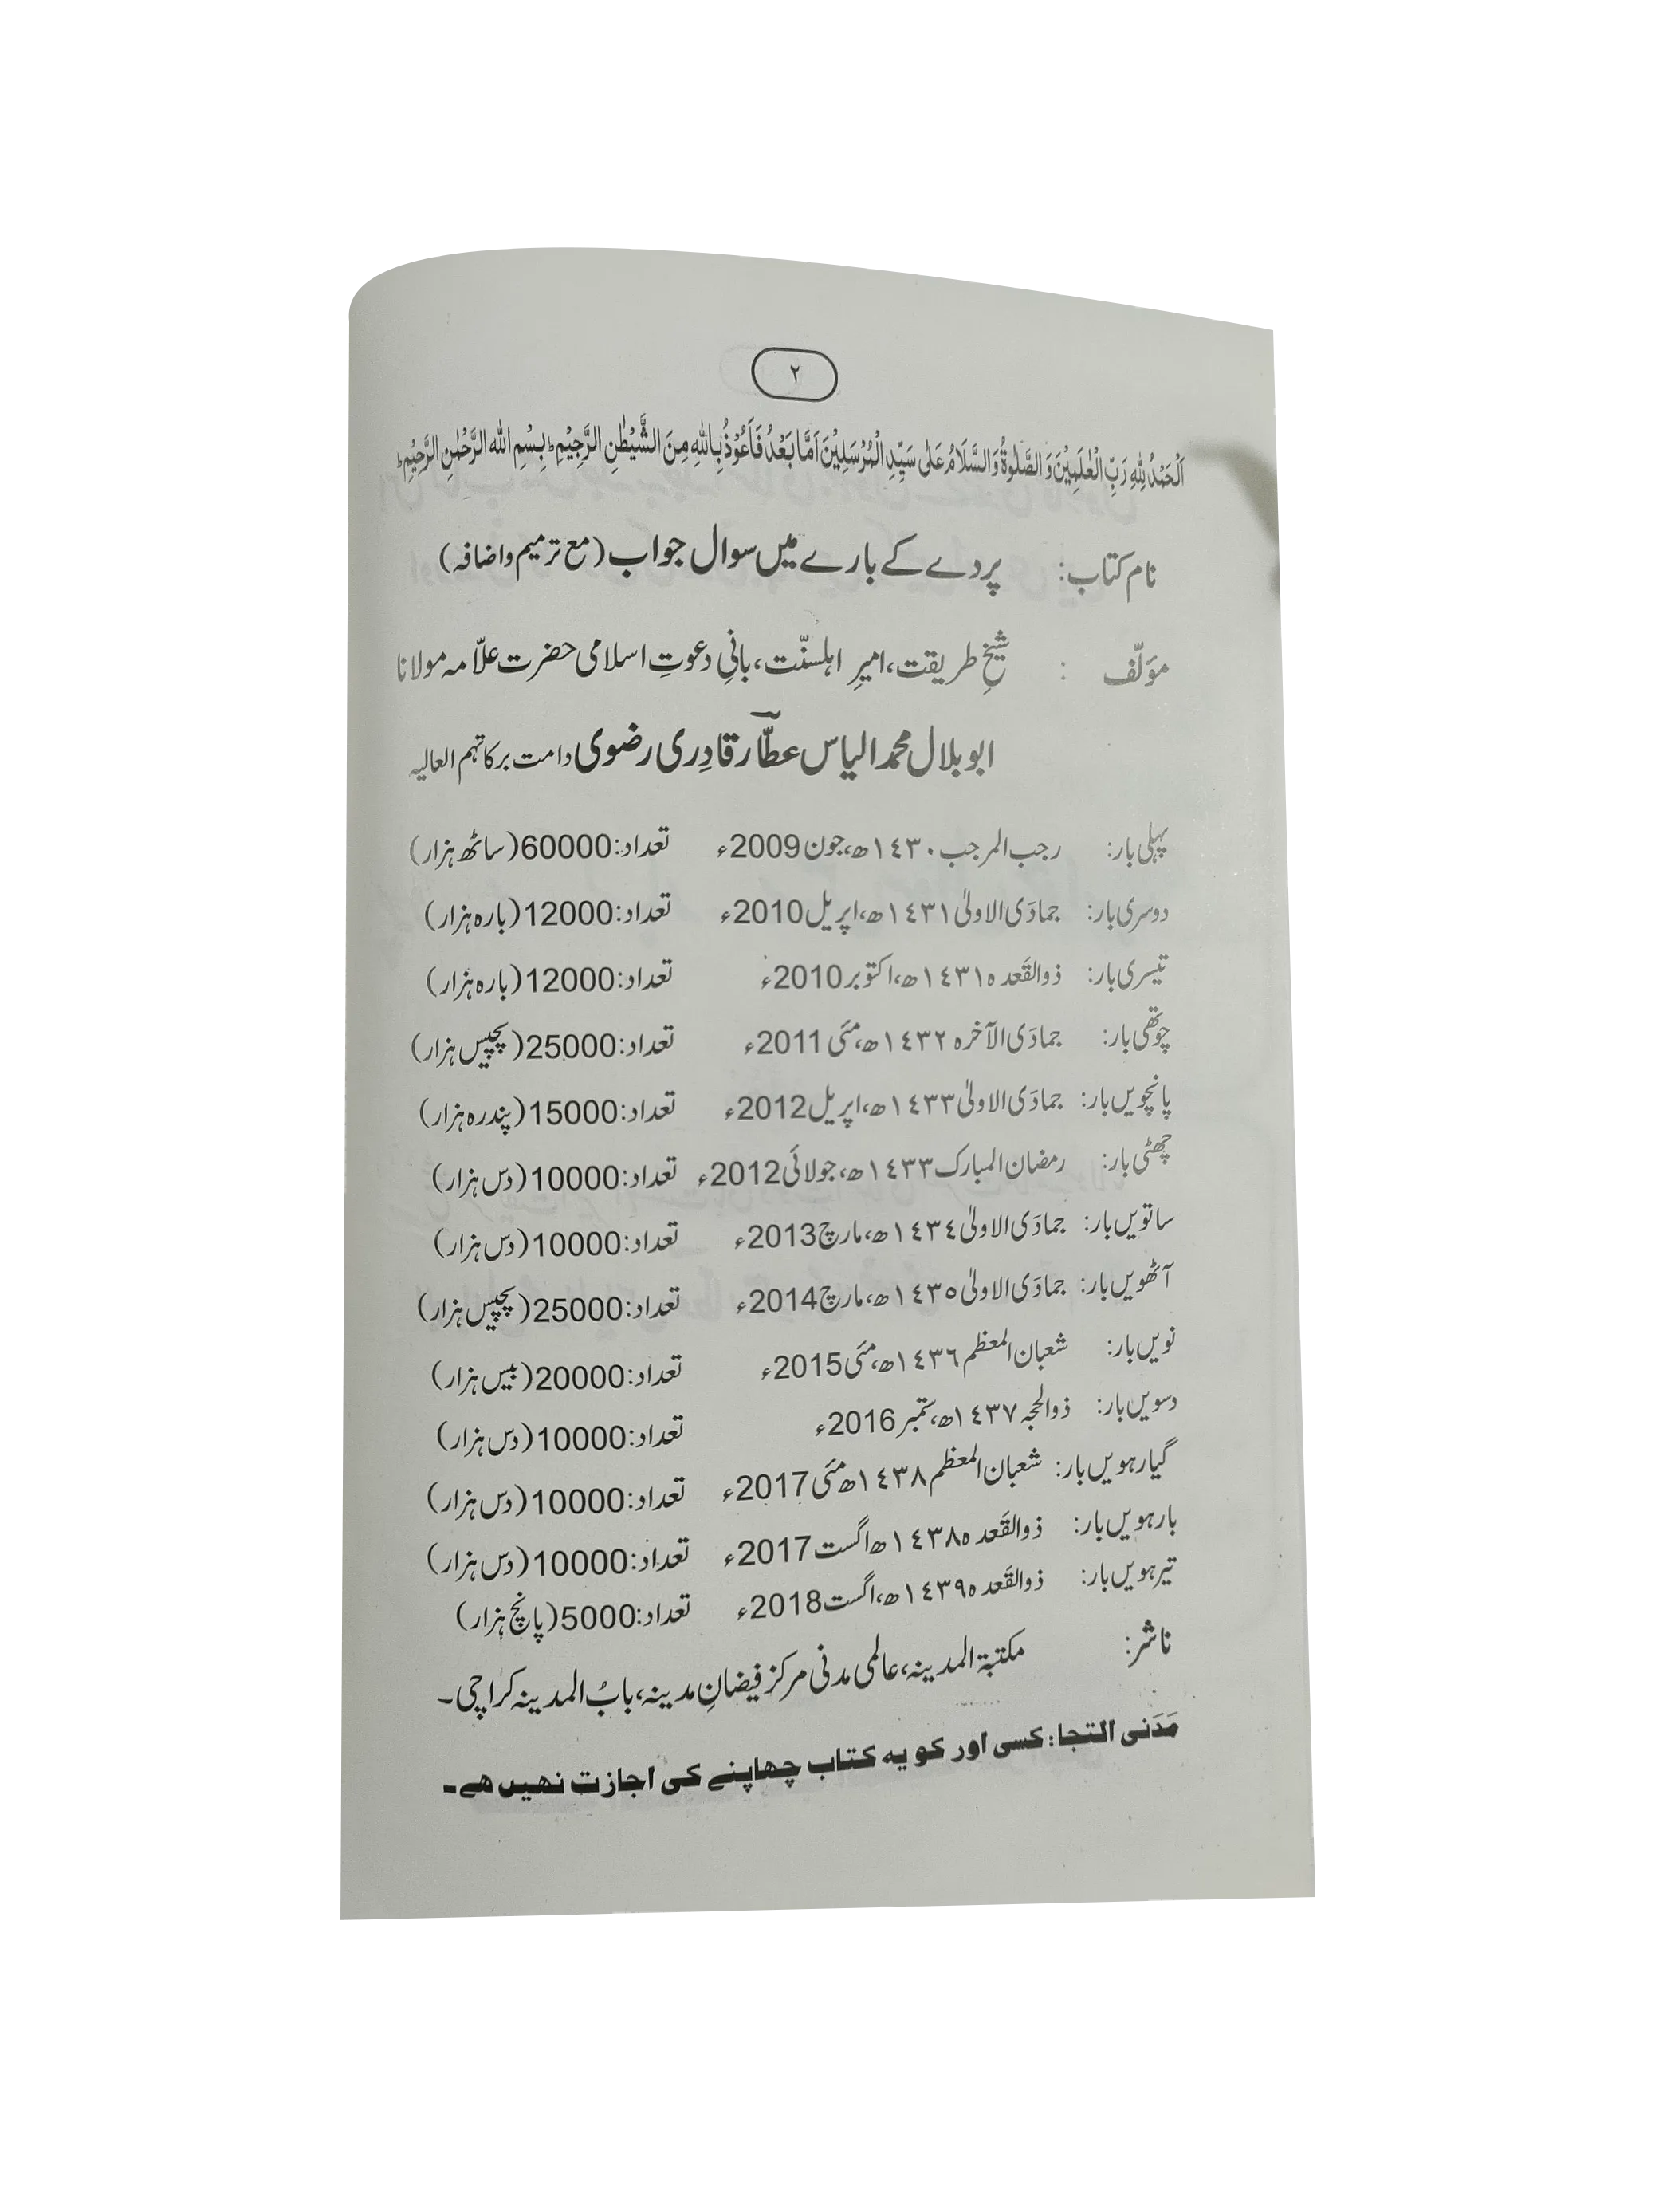 ٢
اَلْحَمْدُ لِلّٰهِ رَبِّ الْعٰلَمِيْنَ وَ الصَّلٰوةُ وَالسَّلَامُ عَلٰى سَيِّدِ الْمُرْسَلِيْنَ اَمَّا بَعْدُ فَاَعُوْذُ بِاللّٰهِ مِنَ الشَّيْطٰنِ الرَّجِيْمِ ؕ بِسْمِ اللّٰهِ الرَّحْمٰنِ الرَّحِيْمِ ؕ
نام کتاب: پردے کے بارے میں سوال جواب (مع ترمیم و اضافہ)
مؤلّف : شیخِ طریقت، امیرِ اہلسنّت، بانیِ دعوتِ اسلامی حضرت علّامہ مولانا
ابو بلال محمد الیاس عطّار قادِری رضوی دامت برکاتہم العالیہ
پہلی بار: رجب المرجب ١٤٣٠ھ، جون 2009ء تعداد: 60000 (ساٹھ ہزار)
دوسری بار: جمادَی الاولٰی ١٤٣١ھ، اپریل 2010ء تعداد: 12000 (بارہ ہزار)
تیسری بار: ذوالقَعدہ ١٤٣١ھ، اکتوبر 2010ء تعداد: 12000 (بارہ ہزار)
چوتھی بار: جمادَی الآخرہ ١٤٣٢ھ، مئی 2011ء تعداد: 25000 (پچیس ہزار)
پانچویں بار: جمادَی الاولٰی ١٤٣٣ھ، اپریل 2012ء تعداد: 15000 (پندرہ ہزار)
چھٹی بار: رمضان المبارک ١٤٣٣ھ، جولائی 2012ء تعداد: 10000 (دس ہزار)
ساتویں بار: جمادَی الاولٰی ١٤٣٤ھ، مارچ 2013ء تعداد: 10000 (دس ہزار)
آٹھویں بار: جمادَی الاولٰی ١٤٣٥ھ، مارچ 2014ء تعداد: 25000 (پچیس ہزار)
نویں بار: شعبان المعظم ١٤٣٦ھ، مئی 2015ء تعداد: 20000 (بیس ہزار)
دسویں بار: ذوالحجہ ١٤٣٧ھ، ستمبر 2016ء تعداد: 10000 (دس ہزار)
گیارہویں بار: شعبان المعظم ١٤٣٨ھ مئی 2017ء تعداد: 10000 (دس ہزار)
بارہویں بار: ذوالقَعدہ ١٤٣٨ھ اگست 2017ء تعداد: 10000 (دس ہزار)
تیرہویں بار: ذوالقَعدہ ١٤٣٩ھ، اگست 2018ء تعداد: 5000 (پانچ ہزار)
ناشر: مکتبۃ المدینہ، عالمی مدنی مرکز فیضانِ مدینہ، بابُ المدینہ کراچی۔
مَدَنی التجا: کسی اور کو یہ کتاب چھاپنے کی اجازت نہیں ہے۔